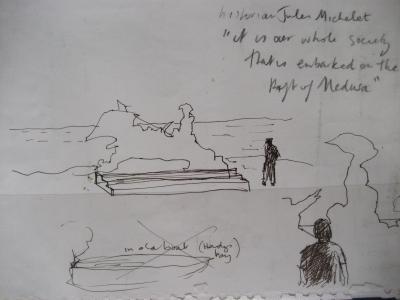 historian Jules Michelet
"it is our whole society
that is embarked on the
Raft of Medusa"
in old boat (Hardys
bay